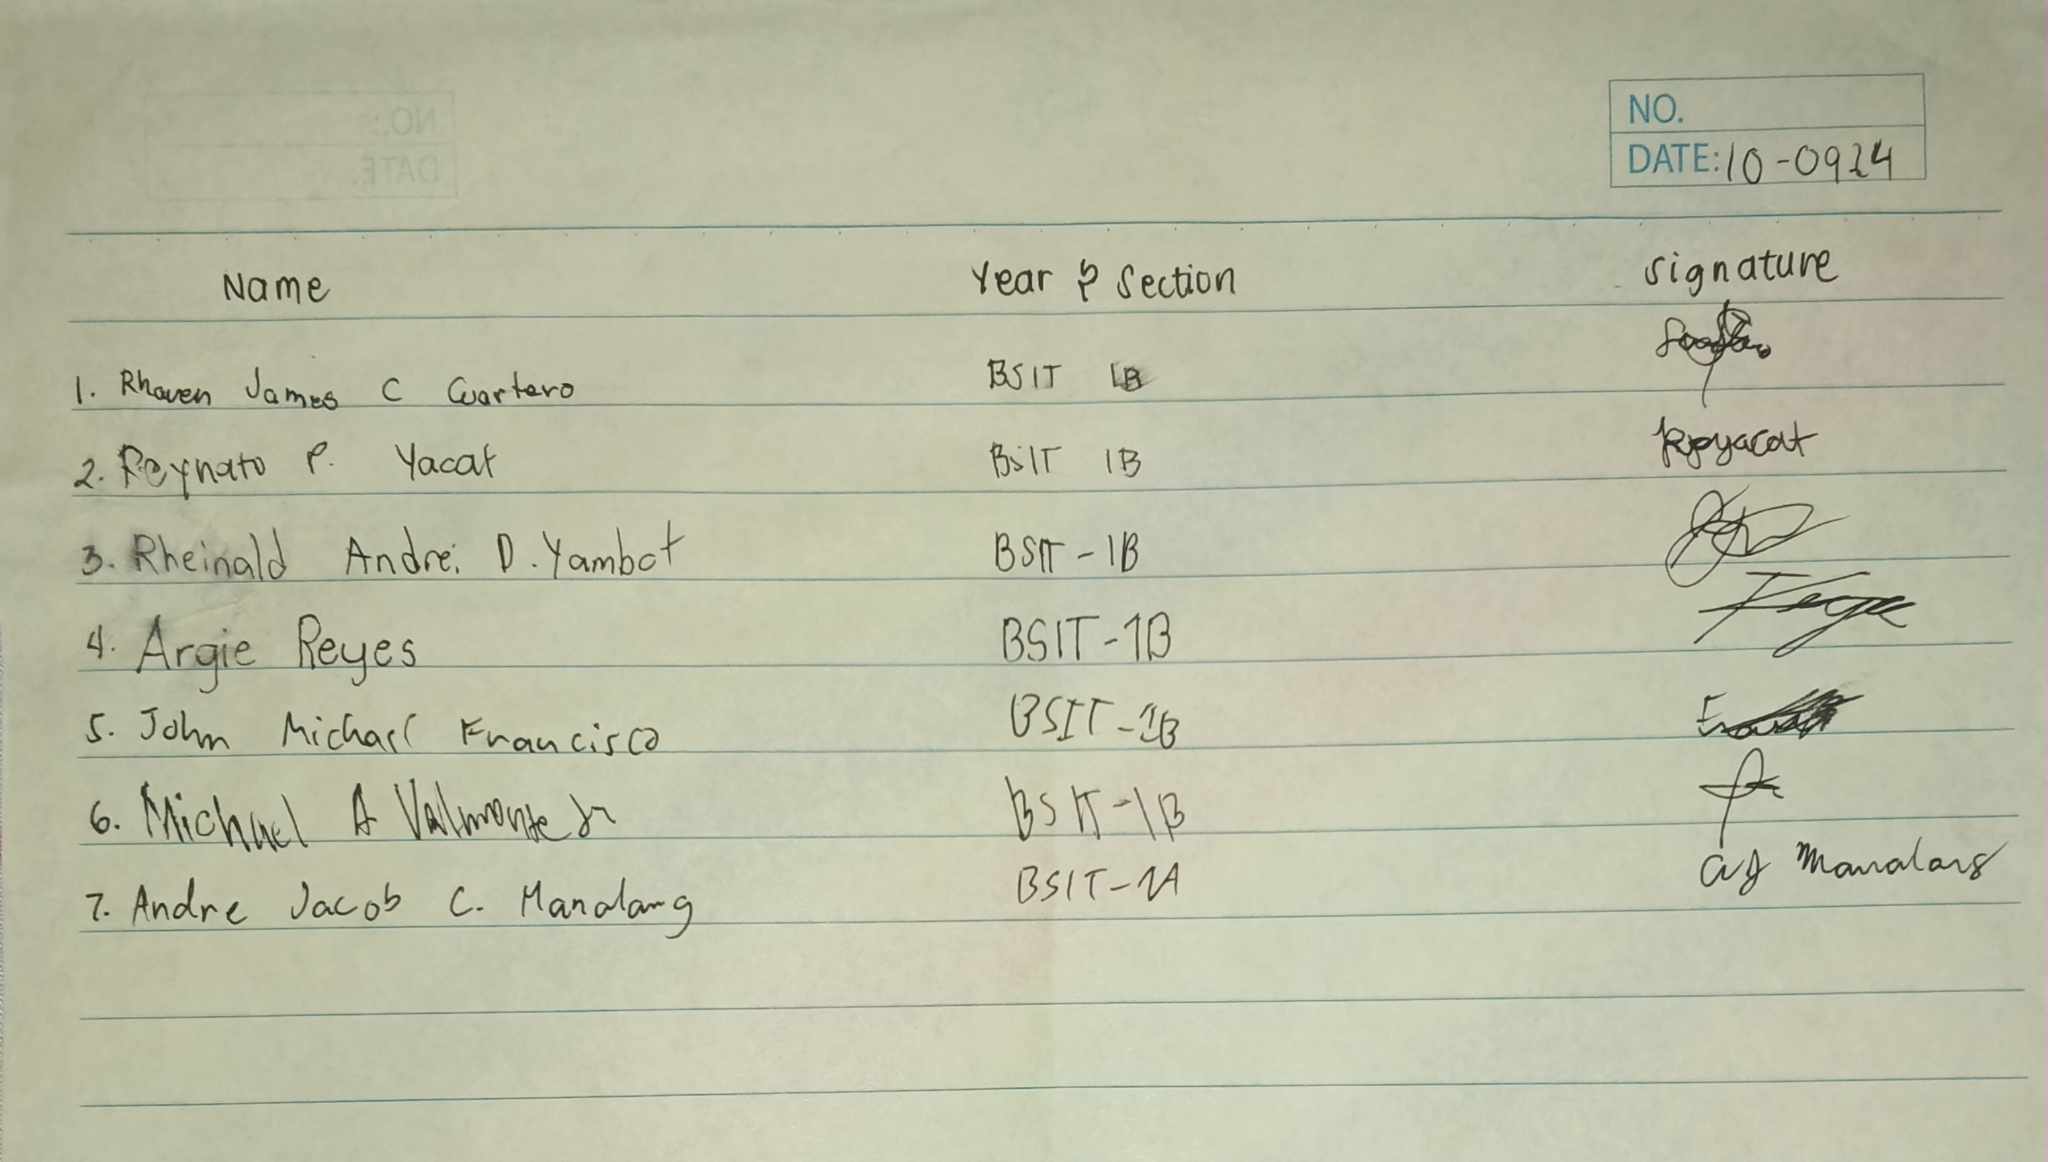 NO.
DATE: 10-0924
Name Year & Section signature
1. Rhaven James C Cuartero BSIT 1B
2. Reynato P. Yacat BSIT 1B Rpyacat
3. Rheinald Andrei D. Yambot BSIT-1B
4. Argie Reyes BSIT-1B
5. John Michael Francisco BSIT-1B
6. Michael A Valmonte Jr BSIT-1B
7. Andre Jacob C. Manalang BSIT-1A AJ Manalang